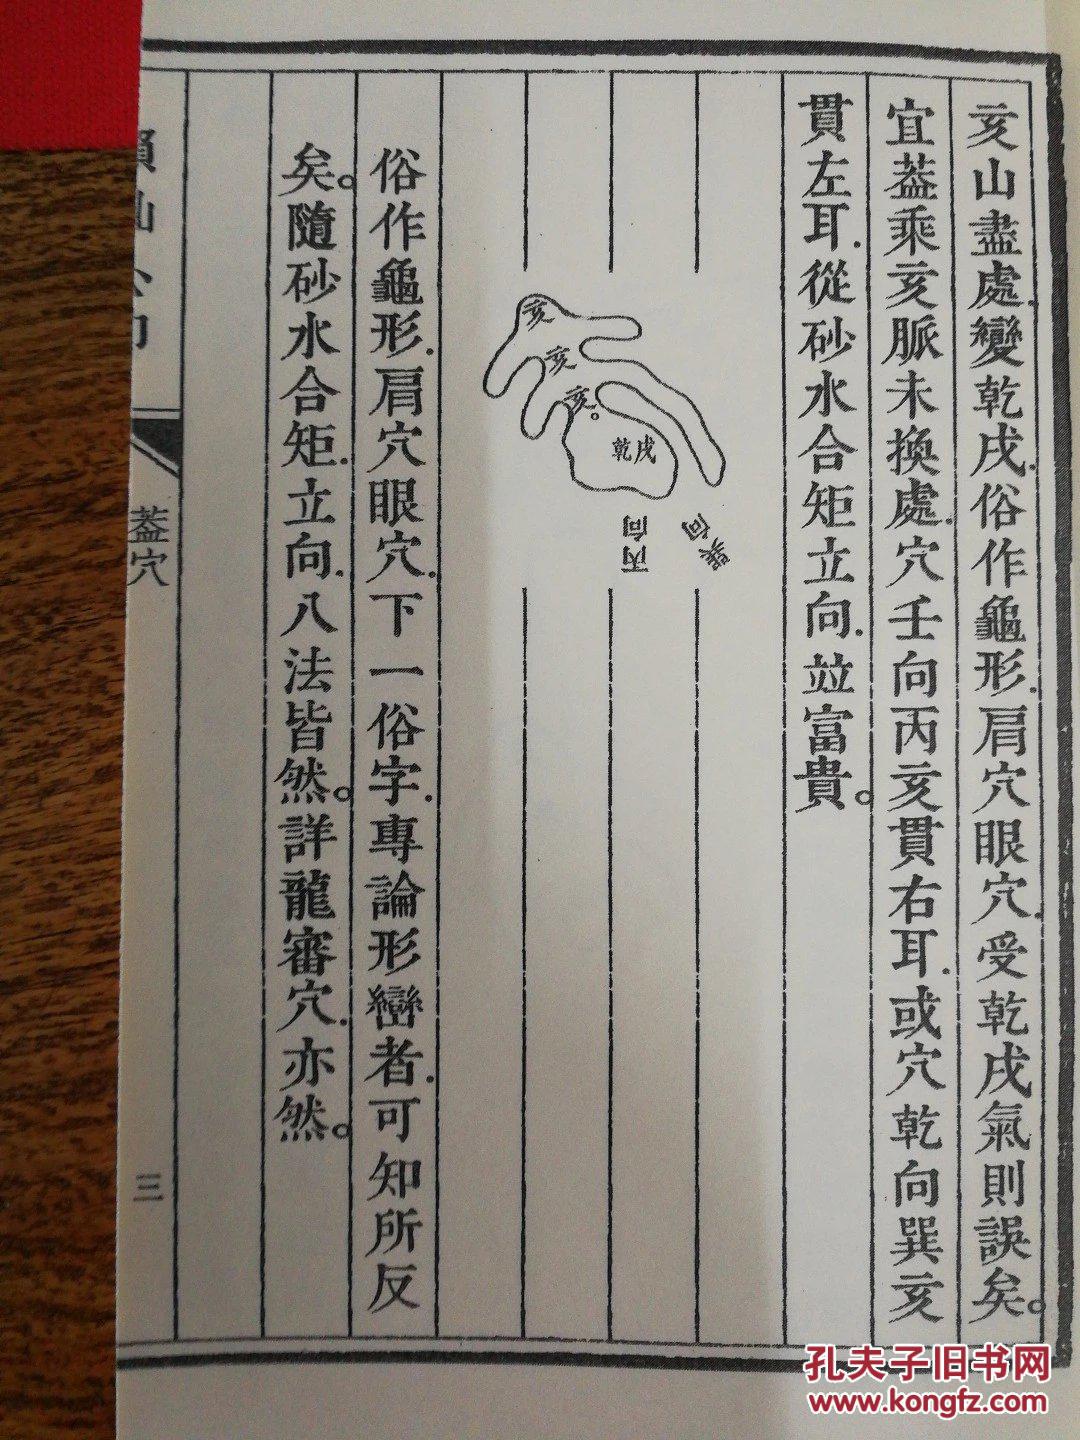 亥山盡處.變乾戌.俗作龜形.肩穴眼穴.受乾戌氣則誤矣。
宜葢乘亥脈未換處.穴壬向丙亥貫右耳.或穴乾向巽亥
貫左耳.從砂水合矩立向.竝富貴。
亥
亥
亥
乾戌
丙向
巽向
俗作龜形.肩穴眼穴.下一俗字.專論形巒者.可知所反
矣。隨砂水合矩.立向.八法皆然。詳龍審穴.亦然。
葢穴
三
孔夫子旧书网
www.kongfz.com